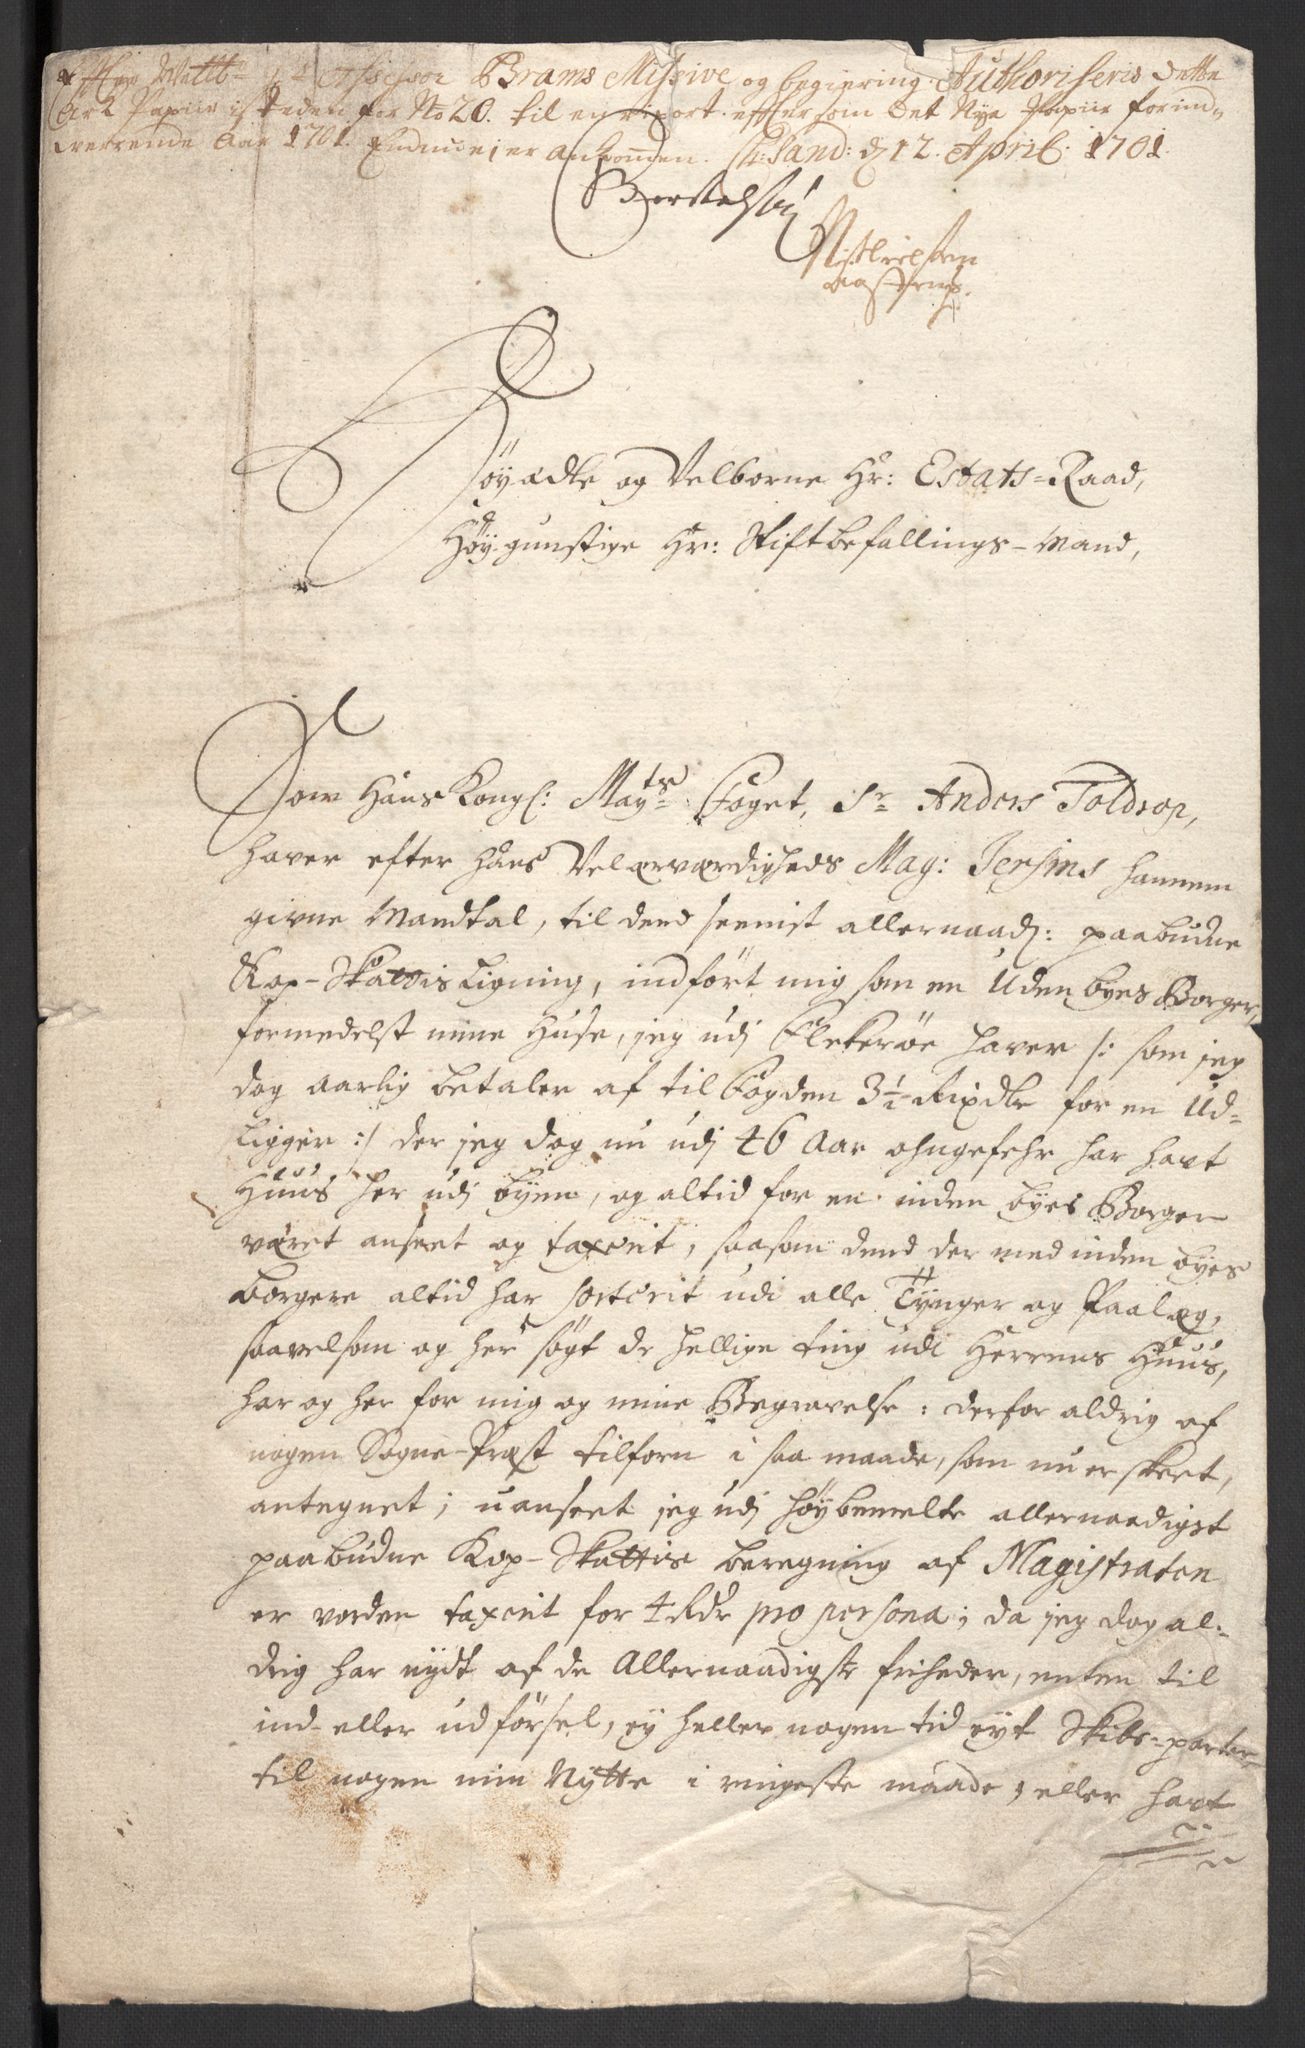 Efter Welb: Hr Assessor Brams Missive og begiering Authoriseris dette
Ark Papiir isteden for No 20. til en report. effter som det Nye Papiir for ind-
werende Aar 1701. Endnu ei er ankommen. Chr:Sand: d 12. April: 1701.
Høyædle og Velborne Hr: Estats-Raad,
Høygunstige Hr: Stiftbefallings-Mand,
Som Hans Kongl: Mayts Foget, Sr Anders Toldrop,
haver efter Hans Velærværdigheds Mag: Jersins hannem
givne Mandtal, til dend seenist allernaad: paabudne
Kop-Skattis Ligning, indført mig som en Uden byes Borger,
formedelst mine Huse, jeg udj Flekerøe haver /: som jeg
dog aarlig betaler af til Fogden 3½ Rixdlr for en Ud-
ligger :/ der jeg dog nu udj 46 Aar ohngefehr har havt
Huus her udj byen, og altid for en inden byes Borger
været anseet og taxerit, saasom dend der med inden byes
Borgere altid har sorterit udi alle Tynger og Paalæg,
saavelsom og her søgt de hellige ting udi Herrens Huus,
har og her for mig og mine Begravelse: derfor aldrig af
nogen Sogne-Præst tilforn i saa maade, som nu er skeet,
antegnet; uanseet jeg udj høybemelte allernaadigst
paabudne Kop-Skattis beregning af Magistraten
er vorden taxerit for 4 Rdr pro persona; da jeg dog al-
drig har nydt af de Allernaadigste friheder, enten til
ind- eller udførsel, ey heller nogen tid eyt Skibs-parter
til nogen min Nytte i ringeste maade, eller havt